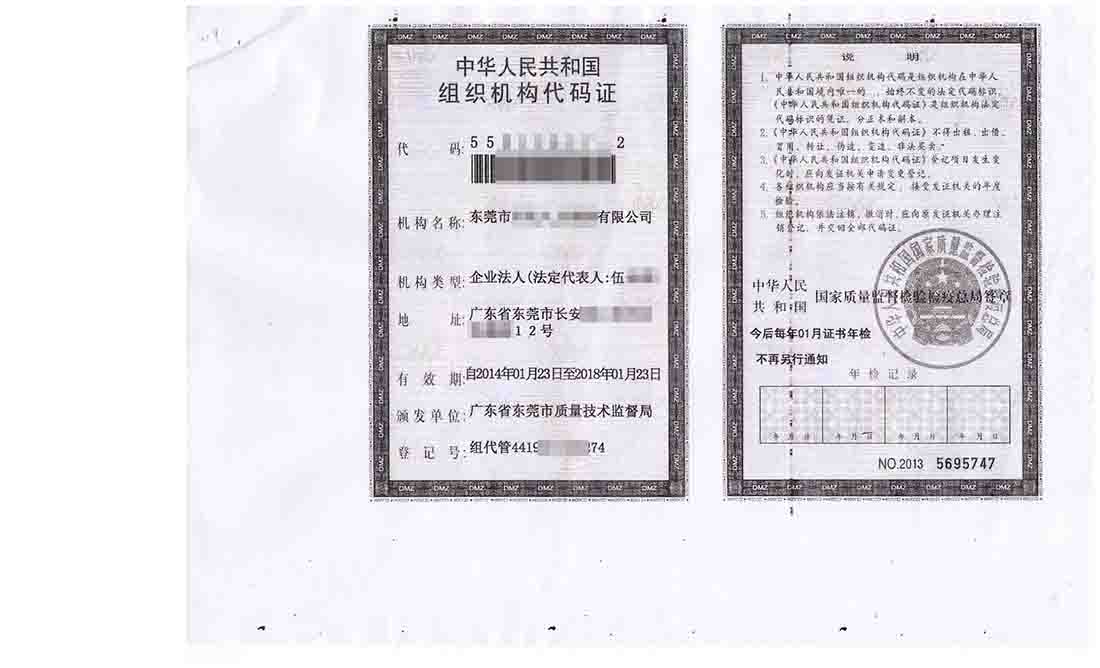 中华人民共和国
组织机构代码证
代 码: 55 2
机构名称: 东莞市 有限公司
机构类型: 企业法人(法定代表人:伍
地 址: 广东省东莞市长安
12号
有 效 期: 自2014年01月23日至2018年01月23日
颁发单位: 广东省东莞市质量技术监督局
登 记 号: 组代管4419 274
说 明
1. 中华人民共和国组织机构代码是组织机构在中华人
民共和国境内唯一的、始终不变的法定代码标识,
《中华人民共和国组织机构代码证》是组织机构法定
代码标识的凭证,分正本和副本。
2. 《中华人民共和国组织机构代码证》不得出租、出借、
冒用、转让、伪造、变造、非法买卖。
3. 《中华人民共和国组织机构代码证》登记项目发生变
化时,应向发证机关申请变更登记。
4. 各组织机构应当按有关规定,接受发证机关的年度
检验。
5. 组织机构依法注销、撤销时,应向原发证机关办理注
销登记,并交回全部代码证。
中华人民
共和国 国家质量监督检验检疫总局签章
中华人民共和国国家质量监督检验检疫总局
今后每年01月证书年检
不再另行通知
年检记录
年 月 日 年 月 日 年 月 日 年 月 日
NO.2013 5695747